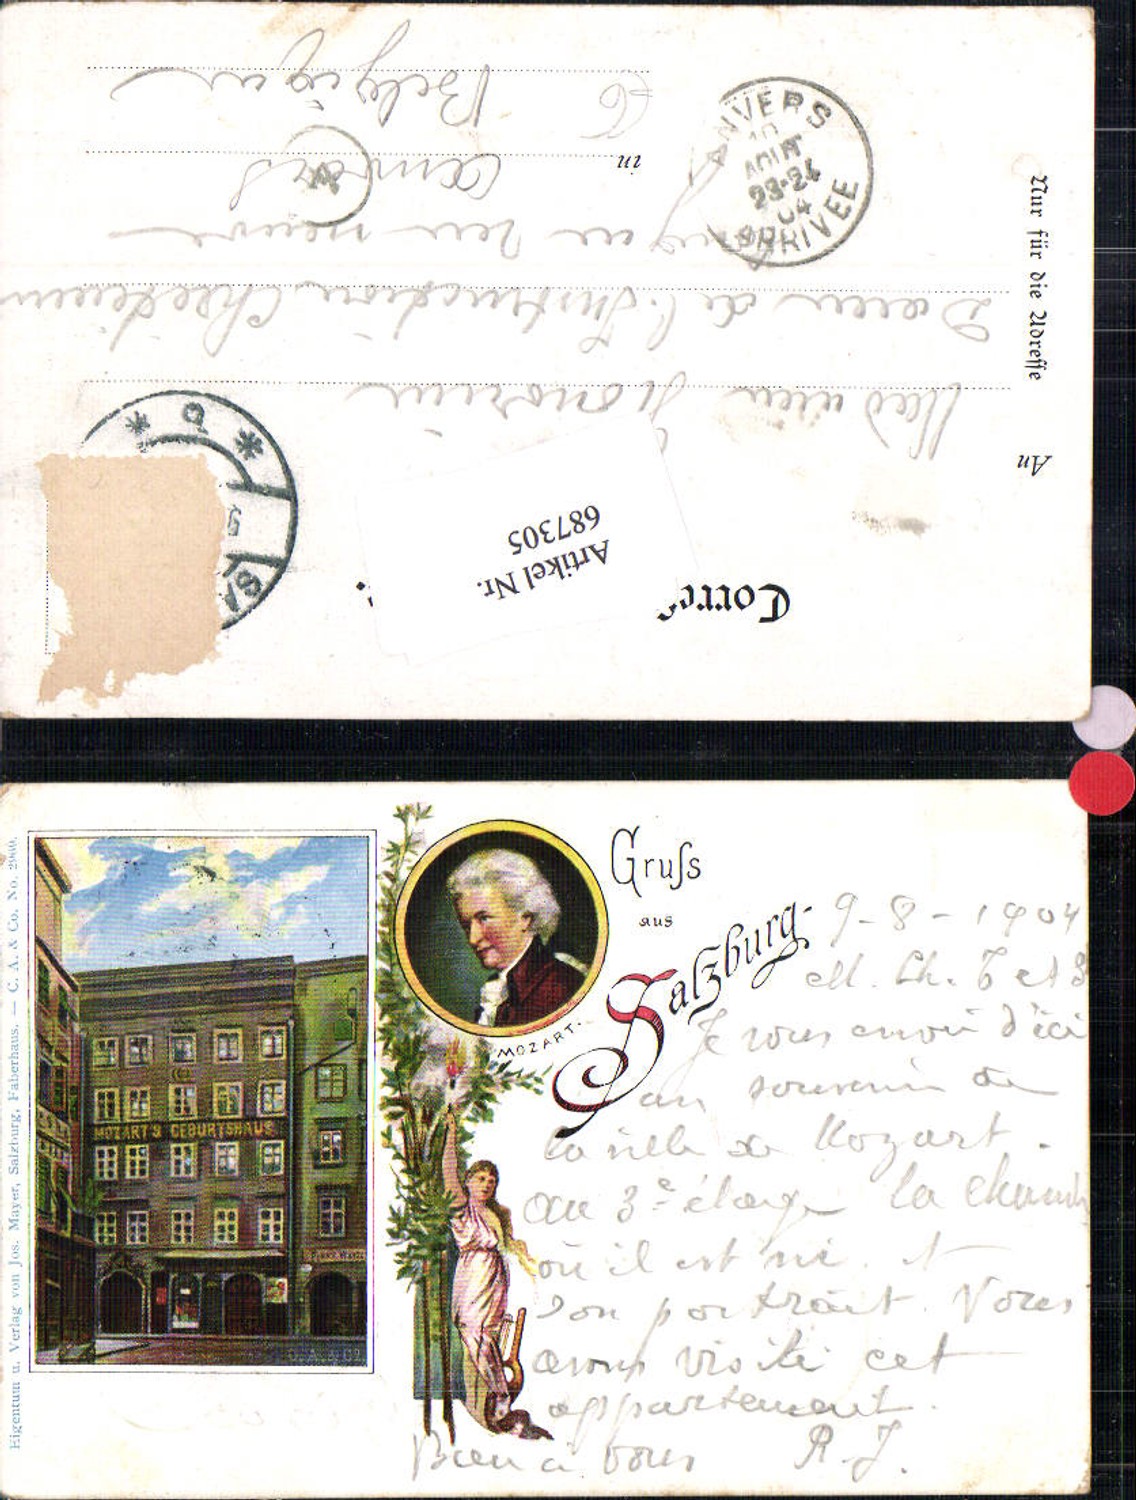 Nur für die Adresse
Corre
Artikel Nr.
687305
An
Honorine
Dame de l'Instruction Chrétienne
in
Anvers
Belgique
ANVERS
10
AOUT
23-24
04
ARRIVEE
SA
Gruss
aus
Salzburg.
MOZART.
MOZART'S GEBURTSHAUS
C. A. & Co.
Eigentum u. Verlag von Jos. Mayer, Salzburg, Faberhaus. — C. A. & Co. No.
9-8-1904
Je vous envoi d'ici
un souvenir de
la ville de Mozart.
au 3e étage la chambre
où il est né et
son portrait. Nous
avons visité cet
appartement.
Bien à vous R. J.